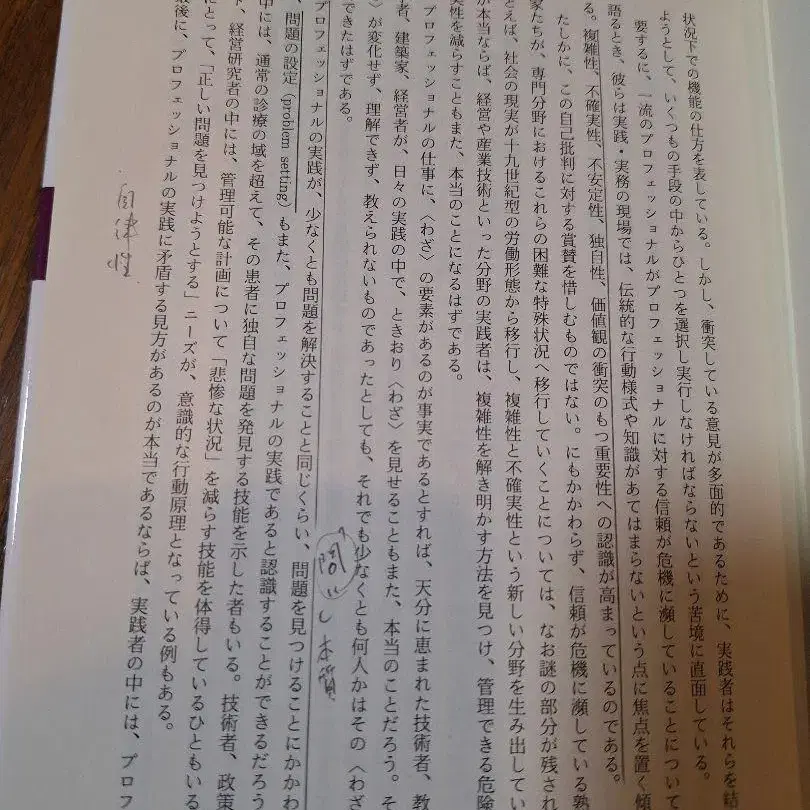 状況下での機能の仕方を表している。しかし、衝突している意見が多面的であるために、実践者はそれらを結
ようとして、いくつもの手段の中からひとつを選択し実行しなければならないという苦境に直面している。
要するに、一流のプロフェッショナルがプロフェッショナルに対する信頼が危機に瀕していることについて
語るとき、彼らは実践・実務の現場では、伝統的な行動様式や知識があてはまらないという点に焦点を置く傾
る。複雑性、不確実性、不安定性、独自性、価値観の衝突のもつ重要性への認識が高まっているのである。
たしかに、この自己批判に対する賞賛を惜しむものではない。にもかかわらず、信頼が危機に瀕している熟
家たちが、専門分野におけるこれらの困難な特殊状況へ移行していくことについては、なお謎の部分が残され
とえば、社会の現実が十九世紀型の労働形態から移行し、複雑性と不確実性という新しい分野を生み出してい
が本当ならば、経営や産業技術といった分野の実践者は、複雑性を解き明かす方法を見つけ、管理できる危険
実性を減らすこともまた、本当のことになるはずである。
プロフェッショナルの仕事に、〈わざ〉の要素があるのが事実であるとすれば、天分に恵まれた技術者、教
者、建築家、経営者が、日々の実践の中で、ときおり〈わざ〉を見せることもまた、本当のことだろう。そ
〉が変化せず、理解できず、教えられないものであったとしても、それでも少なくとも何人かはその〈わざ
できたはずである。
問いし本質
プロフェッショナルの実践が、少なくとも問題を解決することと同じくらい、問題を見つけることにかかわ
、問題の設定(problem setting)もまた、プロフェッショナルの実践であると認識することができるだろう
中には、通常の診療の域を超えて、その患者に独自な問題を発見する技能を示した者もいる。技術者、政策
、経営研究者の中には、管理可能な計画について「悲惨な状況」を減らす技能を体得しているひともいる
にとって、「正しい問題を見つけようとする」ニーズが、意識的な行動原理となっている例もある。
最後に、プロフェッショナルの実践に矛盾する見方があるのが本当であるならば、実践者の中には、プロフ
自律性